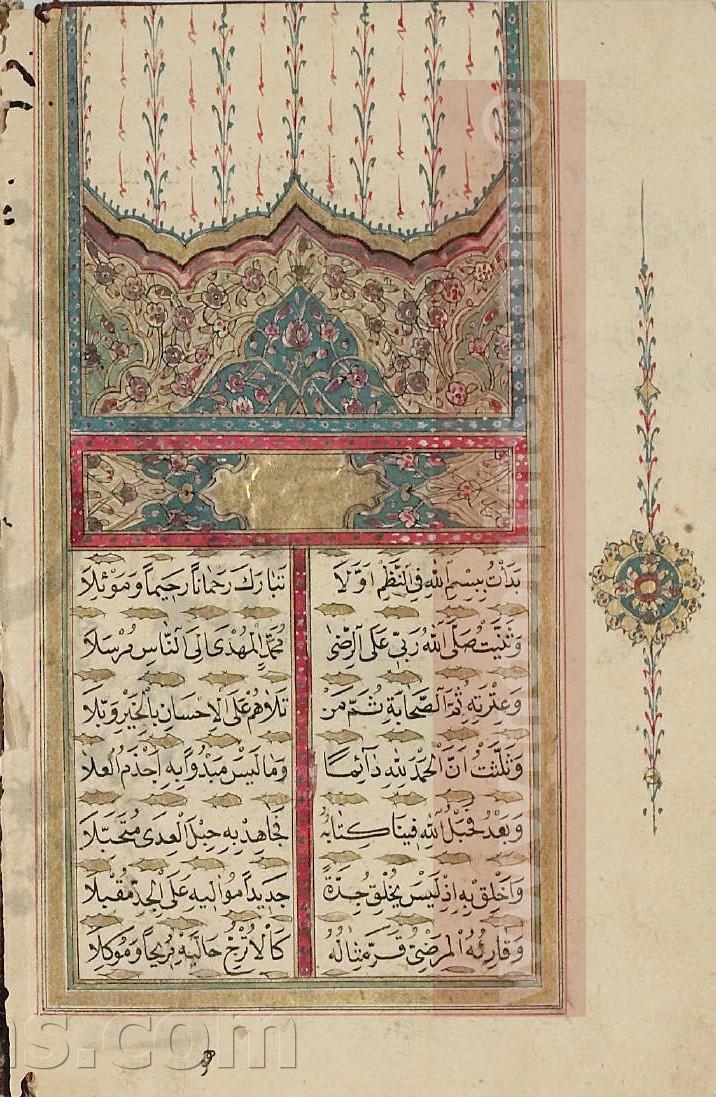 بَدَأْتُ بِبِسْمِ اللهِ فِي النَّظْمِ اَوَّلَا تَبَارَكَ رَحْمَانًا رَحِيمًا وَمَوْئِلَا
وَثَنَّيْتُ صَلَّى اللهُ رَبِّي عَلَى الرِّضَى مُحَمَّدٍ الْمُهْدَى اِلَى النَّاسِ مُرْسَلَا
وَعِتْرَتِهِ ثُمَّ الصَّحَابَةِ ثُمَّ مَنْ تَلَاهُمْ عَلَى الْاِحْسَانِ بِالْخَيْرِ وُبَّلَا
وَثَلَّثْتُ اَنَّ الْحَمْدَ لِلهِ دَآئِمًا وَمَا لَيْسَ مَبْدُوًّا بِهِ اَجْذَمُ الْعَلَا
وَبَعْدُ فَحَبْلُ اللهِ فِينَا كِتَابُهُ فَجَاهِدْ بِهِ حِبْلَ الْعِدَى مُتَحَبِّلَا
وَاَخْلِقْ بِهِ اِذْ لَيْسَ يَخْلُقُ جِدَّةً جَدِيدًا مُوَالِيهِ عَلَى الْجِدِّ مُقْبِلَا
وَقَارِئُهُ الْمَرْضِيُّ قَرَّ مِثَالُهُ كَالْاُتْرُجِّ حَالَيْهِ مُرِيحًا وَمُوكِلَا
ns.com